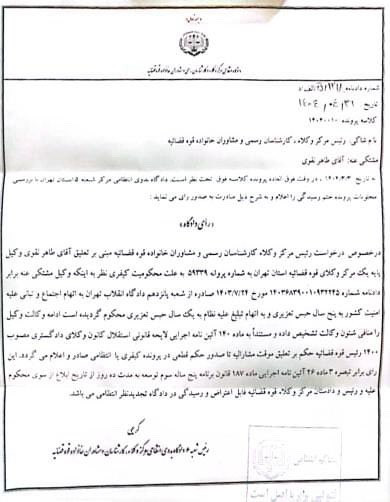 دادگاه انتظامی مرکز وکلا، کارشناسان رسمی و مشاوران خانواده قوه قضاییه
شماره دادنامه
تاریخ: ۱۴۰۴/۰۴/۳۱
کلاسه پرونده ۱۴۰۴۰۰۱۰
نام شاکی: رئیس مرکز وکلاء، کارشناسان رسمی و مشاوران خانواده قوه قضائیه
مشتکی عنه: آقای طاهر نقوی
به تاریخ در وقت فوق العاده پرونده کلاسه فوق تحت نظر است. دادگاه بدوی انتظامی مرکز شعبه استان تهران با بررسی
محتویات پرونده ختم رسیدگی را اعلام و به شرح ذیل مبادرت به صدور رای می نماید:
«رای دادگاه»
درخصوص درخواست رئیس مرکز وکلاء کارشناسان رسمی و مشاوران خانواده قوه قضائیه مبنی بر تعلیق آقای طاهر نقوی وکیل
پایه یک مرکز وکلای قوه قضائیه استان تهران به شماره پروانه ۵۹۳۳۹ به علت محکومیت کیفری نظر به اینکه وکیل مشتکی عنه برابر
دادنامه شماره ۱۴۰۳۶۸۳۹۰۰۱۰۹۳۲۲۴۵ مورخ ۱۴۰۳/۷/۲۴ صادره از شعبه پانزدهم دادگاه انقلاب تهران به اتهام اجتماع و تبانی علیه
امنیت کشور به پنج سال حبس تعزیری و به اتهام تبلیغ علیه نظام به یک سال حبس تعزیری محکوم گردیده است ادامه وکالت وکیل
را منافی شئون وکالت تشخیص داده و مستنداً به ماده ۱۴۰ آئین نامه اجرایی لایحه قانونی استقلال کانون وکلای دادگستری مصوب
۱۴۰۰ رئیس قوه قضائیه حکم بر تعلیق موقت مشارالیه تا صدور حکم قطعی در پرونده کیفری یا انتظامی صادر و اعلام می گردد. این
رای برابر تبصره ۳ ماده ۲۶ آئین نامه اجرایی ماده ۱۸۷ قانون برنامه پنج ساله سوم توسعه به مدت ده روز از تاریخ ابلاغ از سوی محکوم
علیه و رئیس و دادستان مرکز وکلاء قوه قضائیه قابل اعتراض و رسیدگی در دادگاه تجدیدنظر انتظامی می باشد.
کریمی
رئیس شعبه دادگاه بدوی انتظامی مرکز وکلا، کارشناسان و مشاوران خانواده قوه قضاییه
کپی برابر با اصل است